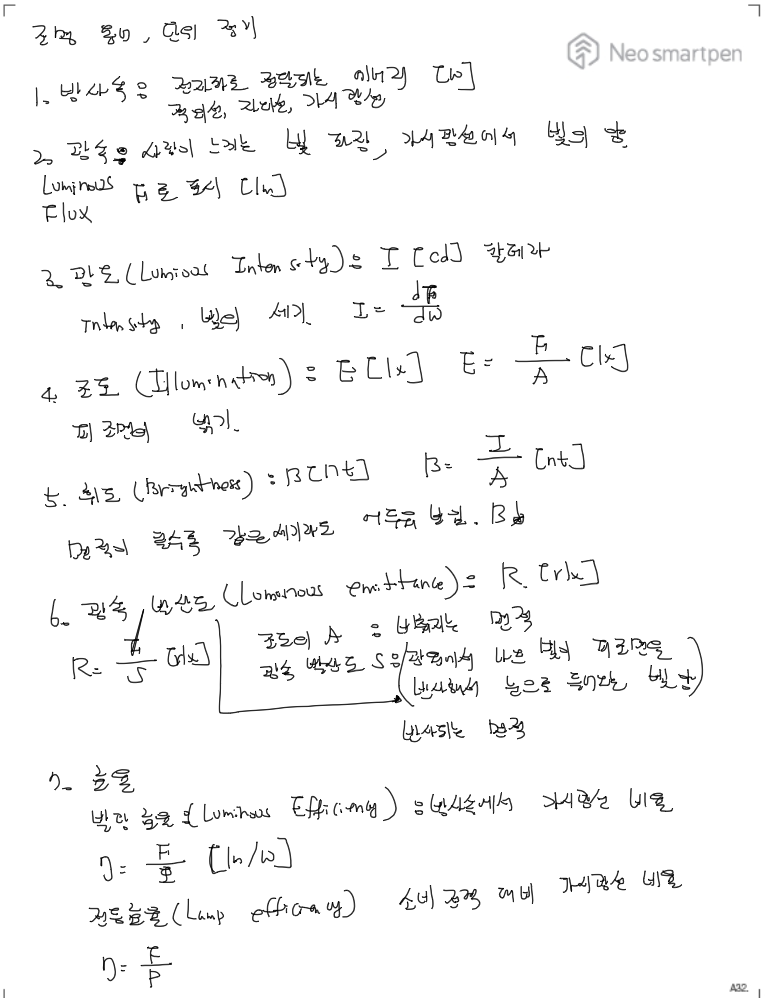 조명 용어, 단위 정리
Neo smartpen
1. 방사속 : 전자파로 전달되는 에너지 [W]
적외선, 자외선, 가시광선
2. 광속 : 사람이 느끼는 빛 파장, 가시광선에서 빛의 양.
Luminous F로 표시 [lm]
Flux
3. 광도 (Lumious Intensity) : I [cd] 칸델라
Intensity, 빛의 세기. I = dF/dω
4. 조도 (Illumination) : E [lx] E = F/A [lx]
피조면의 밝기.
5. 휘도 (Brightness) : B [nt] B = I/A [nt]
면적이 클수록 같은 세기라도 어두워 보임. B↓
6. 광속 발산도 (Luminous emittance) : R. [rlx]
R = F/S [rlx]
조도의 A : 비춰지는 면적
광속 발산도 S : (광원에서 나온 빛이 피조면을
반사해서 눈으로 들어오는 빛 양)
반사되는 면적
7. 효율
발광 효율 (Luminous Efficiency) : 방사속에서 가시광선 비율
η = F/Φ [lm/W]
전등효율 (Lamp efficiency) 소비 전력 대비 가시광선 비율
η = F/P
A32